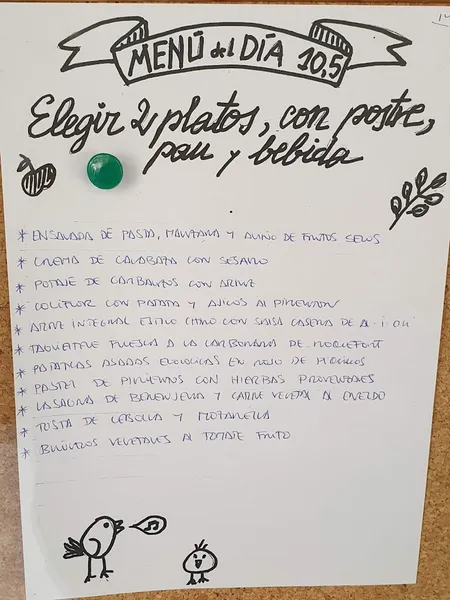 MENÚ del DÍA 10,5
Elegir 2 platos, con postre,
pan y bebida
* ENSALADA DE PASTA, MANZANA Y ALIÑO DE FRUTOS SECOS
* CREMA DE CALABAZA CON SESAMO
* POTAJE DE GARBANZOS CON ARROZ
* COLIFLOR CON PATATA Y AJICOS AL PIMENTON
* ARROZ INTEGRAL ESTILO CHINO CON SALSA CASERA DE AL-I-OLI
* TAGLIATELLE FRESCA A LA CARBONARA DE ROQUEFORT
* PATATAS ASADAS ECOLOGICAS EN MOJO DE
* PASTEL DE PIMIENTOS CON HIERBAS PROVENZALES
* LASAGNA DE BERENJENA Y CARNE VEGETAL AL ENELDO
* TOSTA DE CEBOLLA Y MOZARELLA
* BUÑUELOS VEGETALES AL TOMATE FRITO